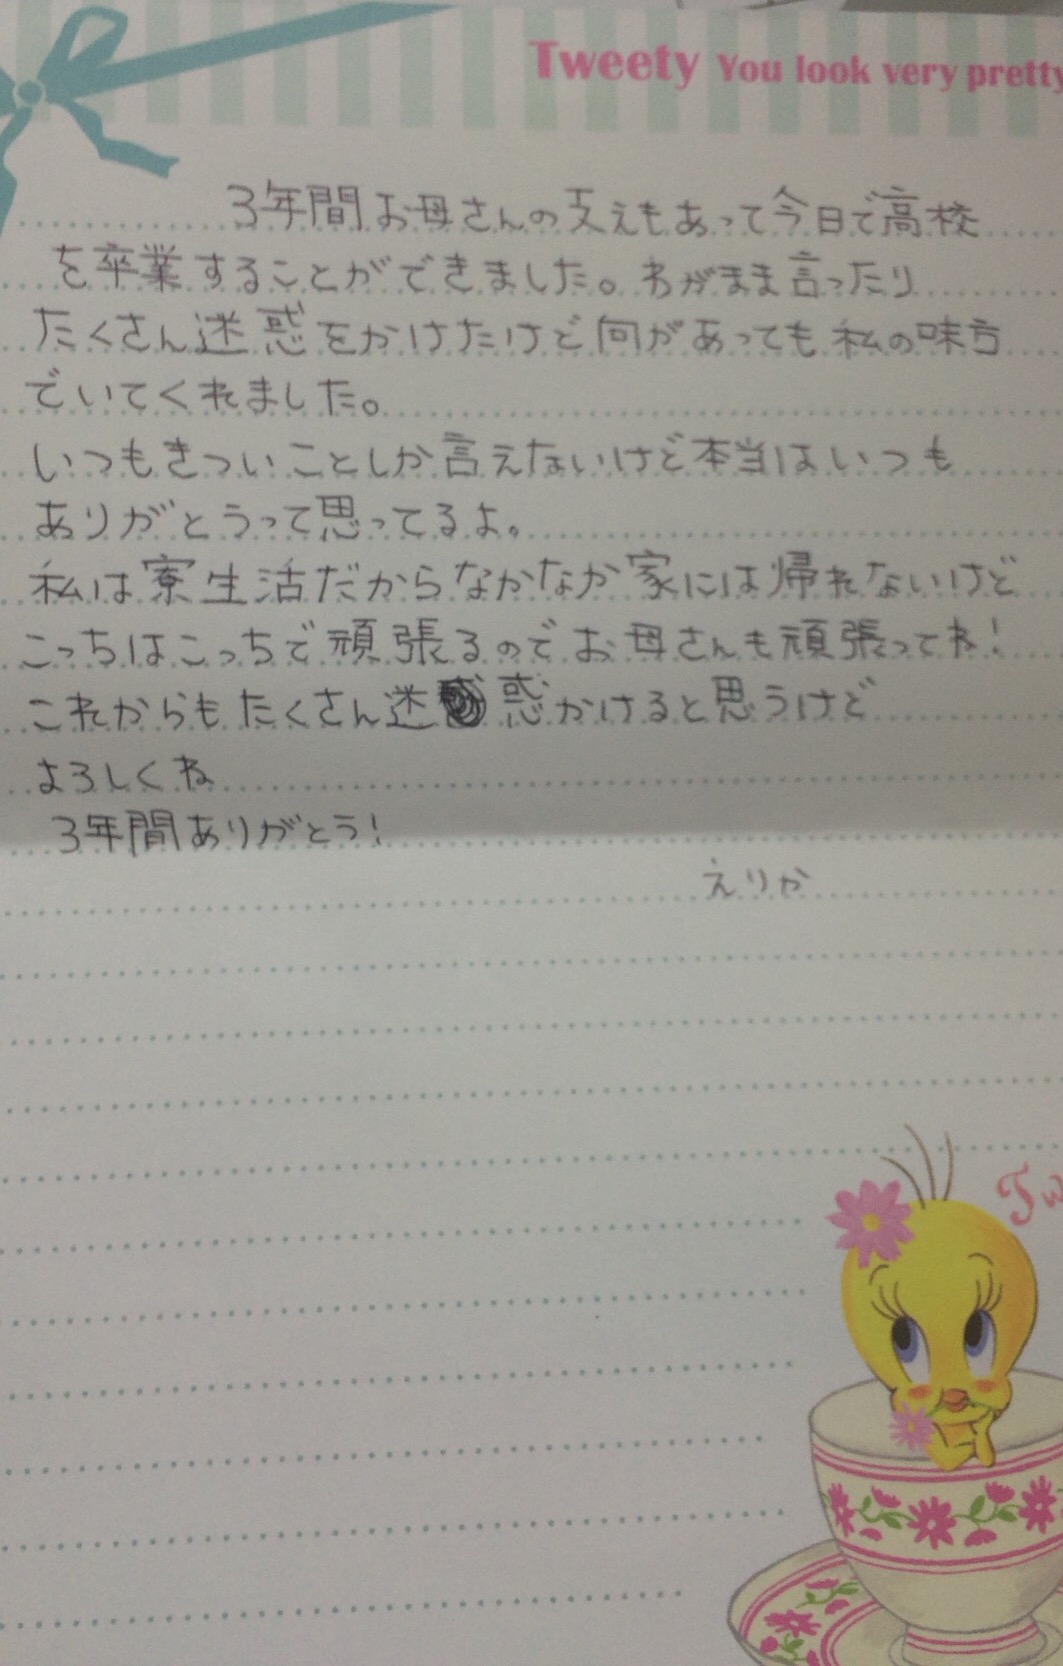 Tweety You look very pretty
3年間お母さんの支えもあって今日で高校
を卒業することができました。わがまま言ったり
たくさん迷惑をかけたけど何があっても私の味方
でいてくれました。
いつもきついことしか言えないけど本当はいつも
ありがとうって思ってるよ。
私は寮生活だからなかなか家には帰れないけど
こっちはこっちで頑張るのでお母さんも頑張ってね!
これからもたくさん迷惑かけると思うけど
よろしくね
3年間ありがとう!
えりか